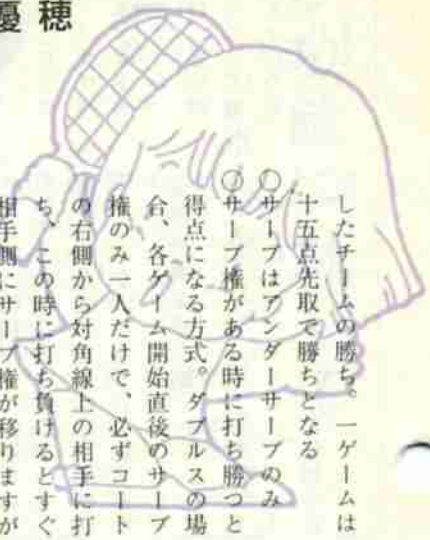 優穂
したチームの勝ち。一ゲームは
十五点先取で勝ちとなる
○サーブはアンダーサーブのみ
○サーブ権がある時に打ち勝つと
得点になる方式。ダブルスの場
合、各ゲーム開始直後のサーブ
権のみ一人だけで、必ずコート
の右側から対角線上の相手に打
ち、この時に打ち負けるとすぐ
相手側にサーブ権が移りますが